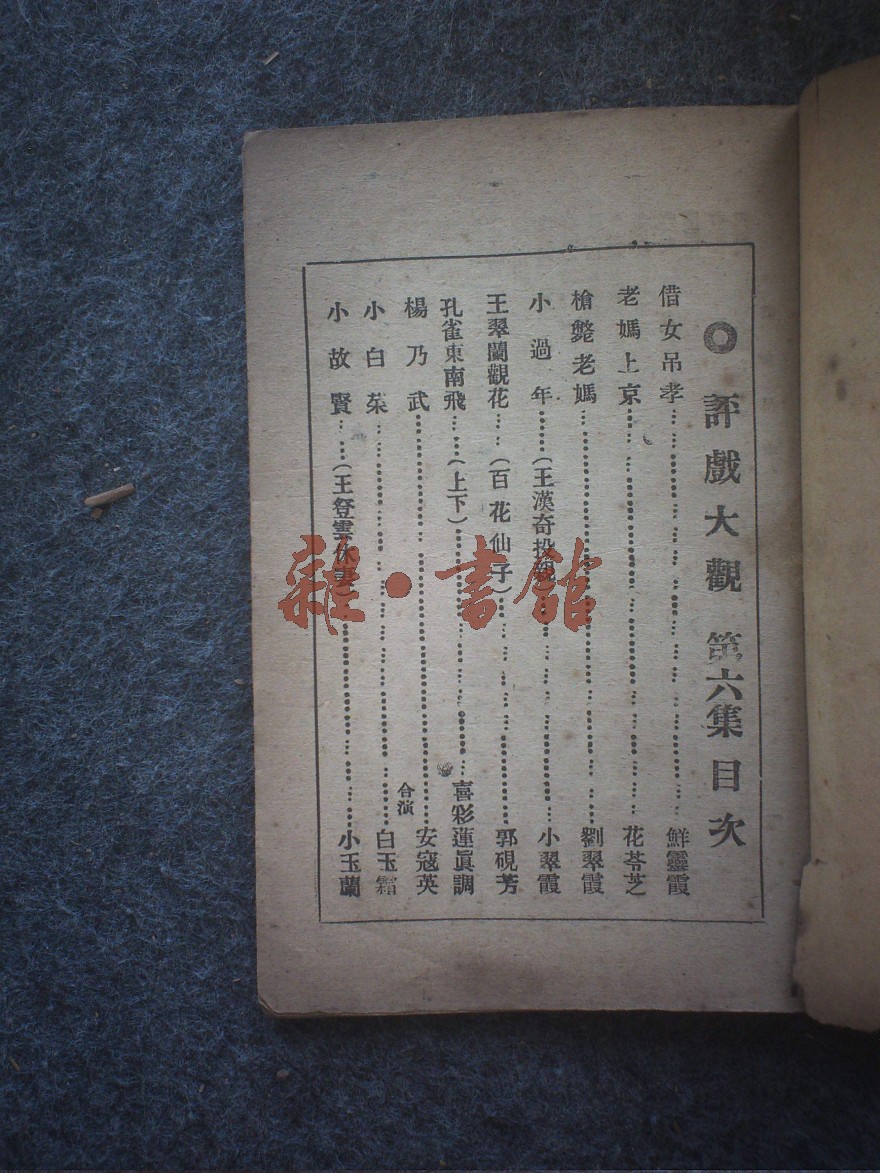 評戲大觀 第六集目次
借女吊孝……鮮靈霞
老媽上京……花苓芝
槍斃老媽……劉翠霞
小過年……(王漢奇投親)……小翠霞
王翠蘭觀花……(百花仙子)……郭硯芳
孔雀東南飛……(上下)……喜彩蓮眞調
楊乃武……安寇英
合演
小白菜……白玉霜
小故賢……(王登雲休妻)……小玉蘭
雜·書館